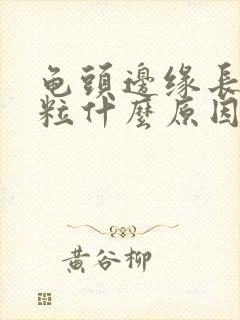 龟頭邊缘長
粒什麼原因
黄谷柳